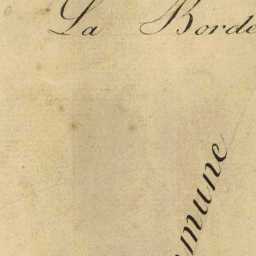 La Borde
mune